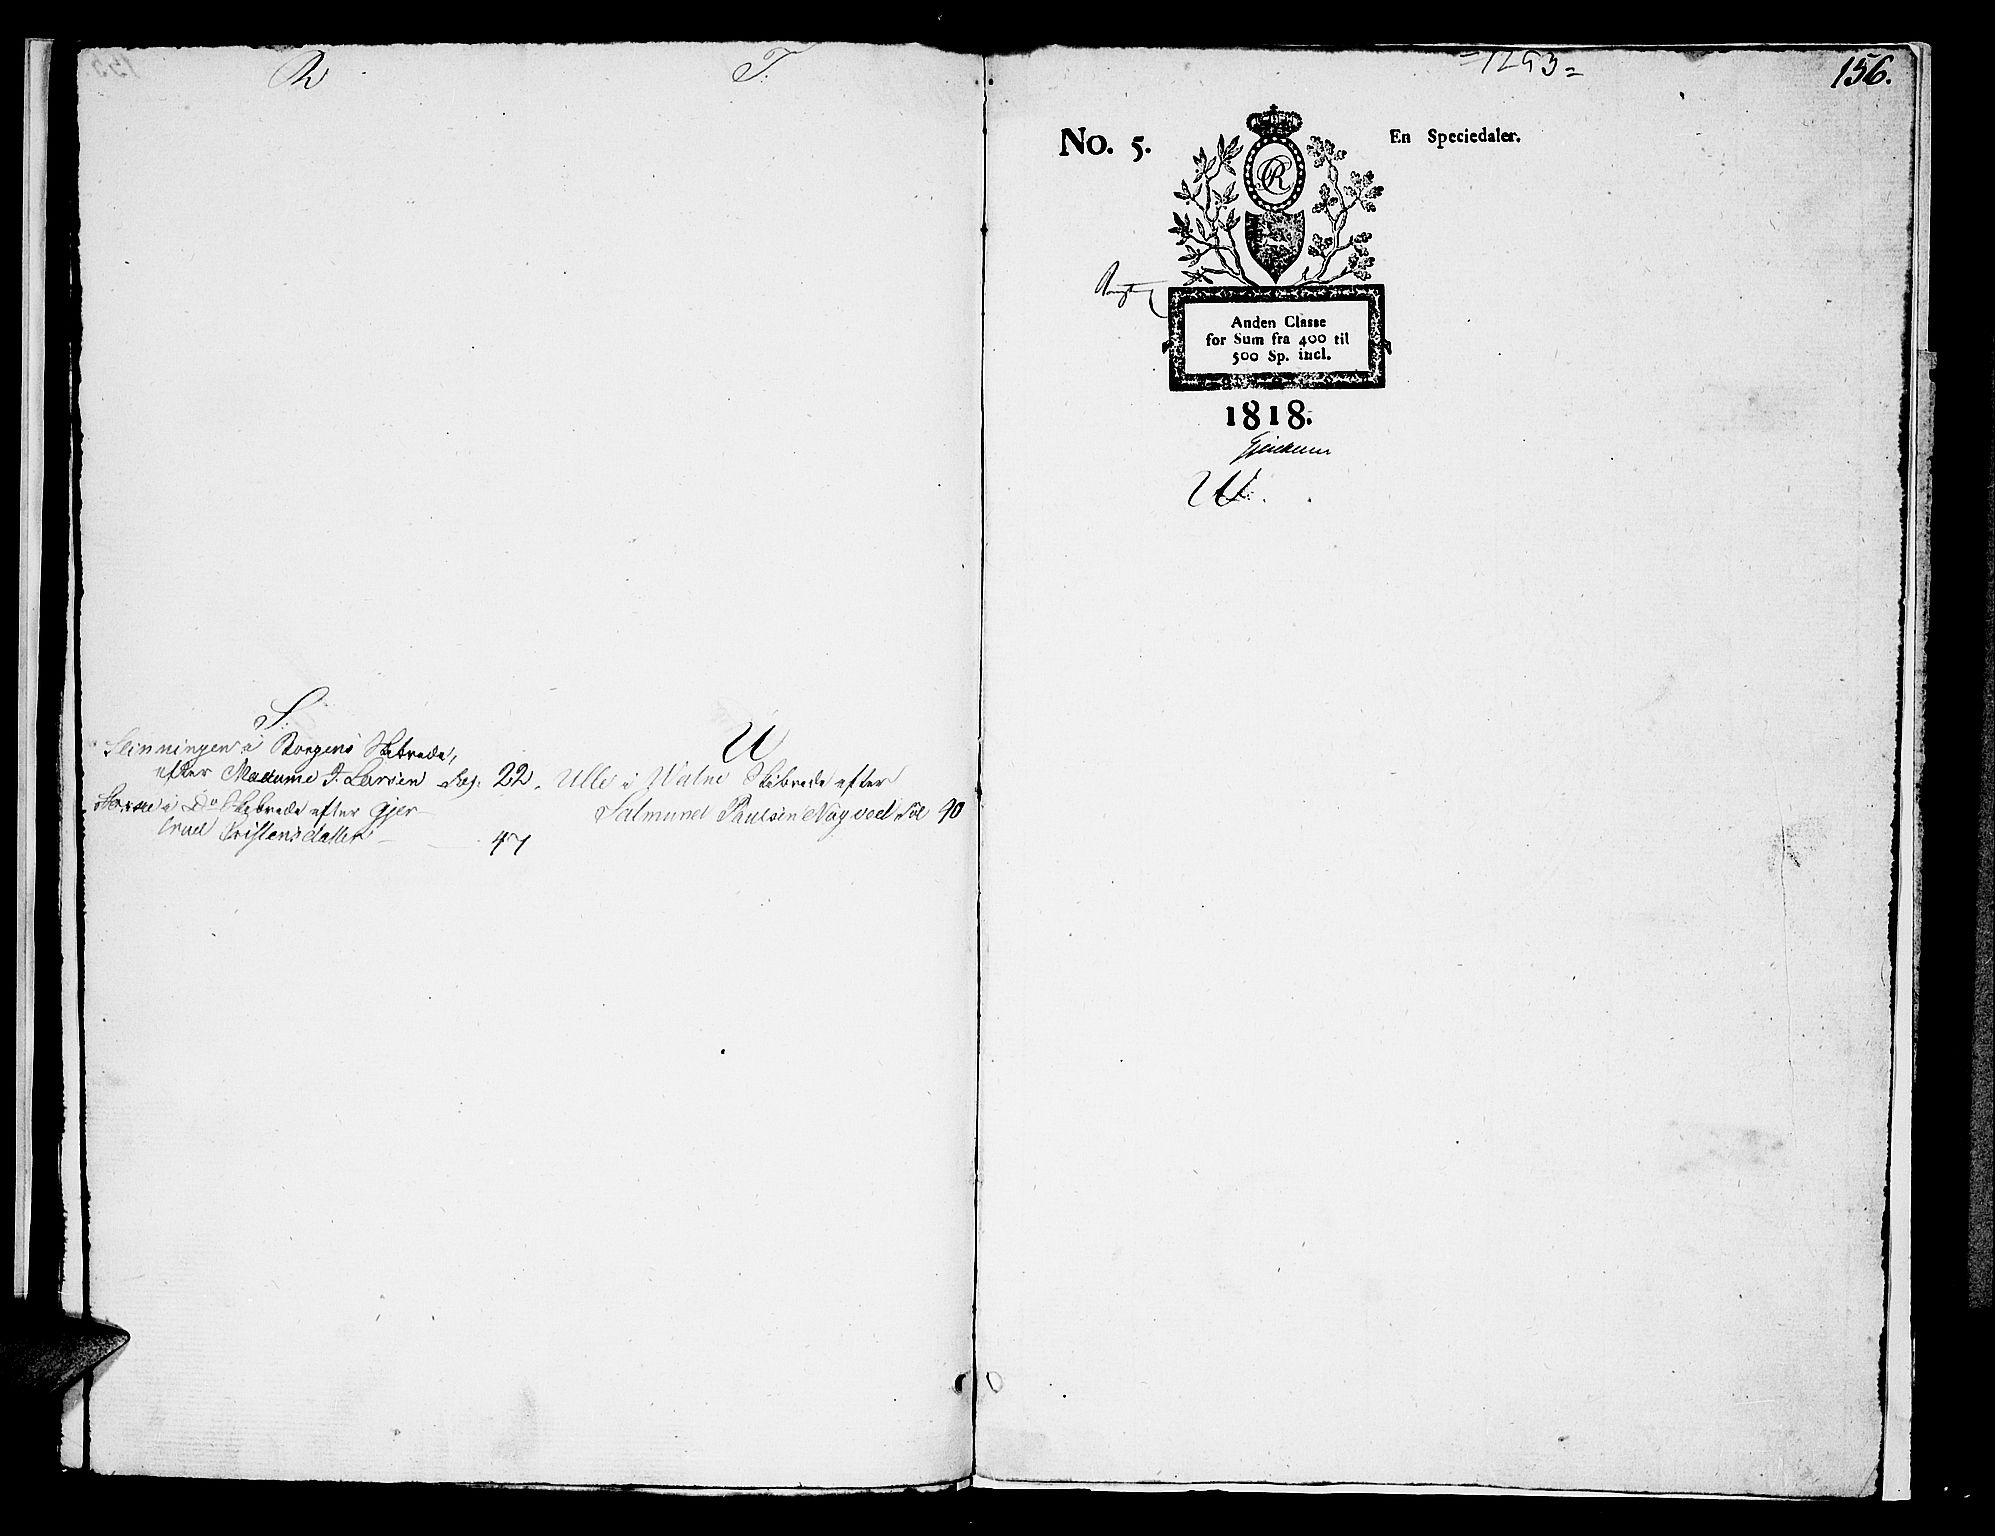 R
T.
S.
Slinningen i Borgens Skibrede,
efter Madame J. Larsen Pag. 22.
i Do Skibrede efter Gjer-
trud Cristensdatter 47
U
Ulle i Skibrede efter
Salmund Paulsen Nogved Fol 90
=1293=
156.
No. 5.
En Speciedaler.
Anden Classe
for Sum fra 400 til
500 Sp. incl.
1818.